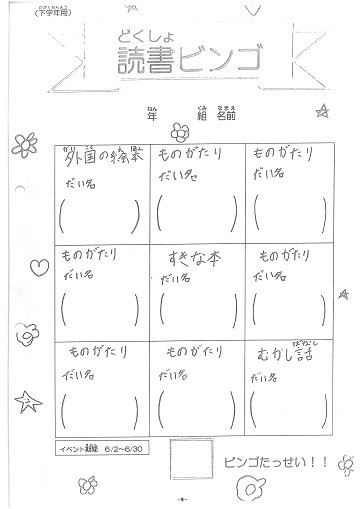 (下学年用)
どくしょ
読書ビンゴ
年 組 名前
外国の絵本 ものがたり ものがたり
だい名 だい名 だい名
ものがたり すきな本 ものがたり
だい名 だい名 だい名
ものがたり ものがたり むかし話
だい名 だい名 だい名
イベント期間 6/2~6/30
ビンゴたっせい!!